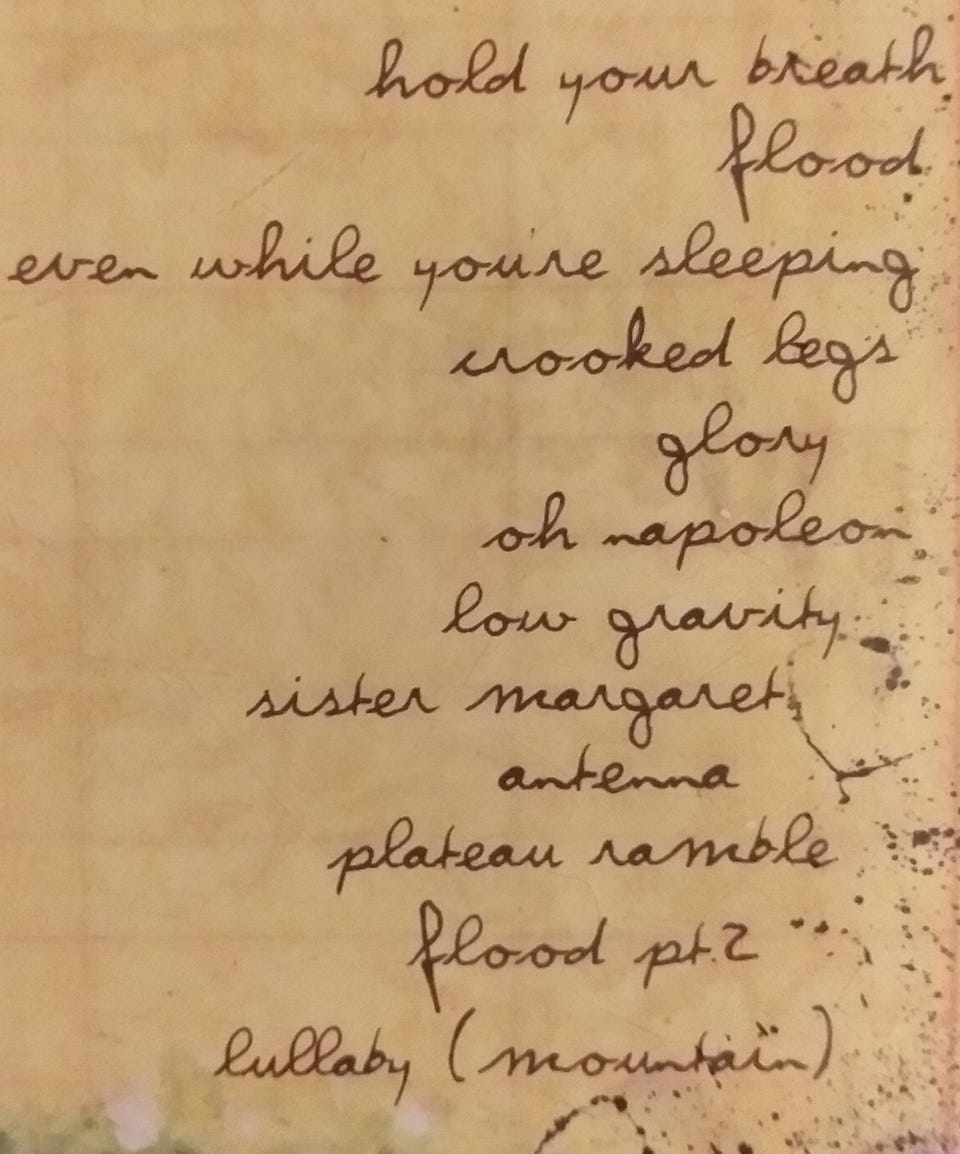 hold your breath
flood
even while you're sleeping
crooked legs
glory
oh napoleon
low gravity
sister margaret
antenna
plateau ramble
flood pt.2
lullaby (mountain)